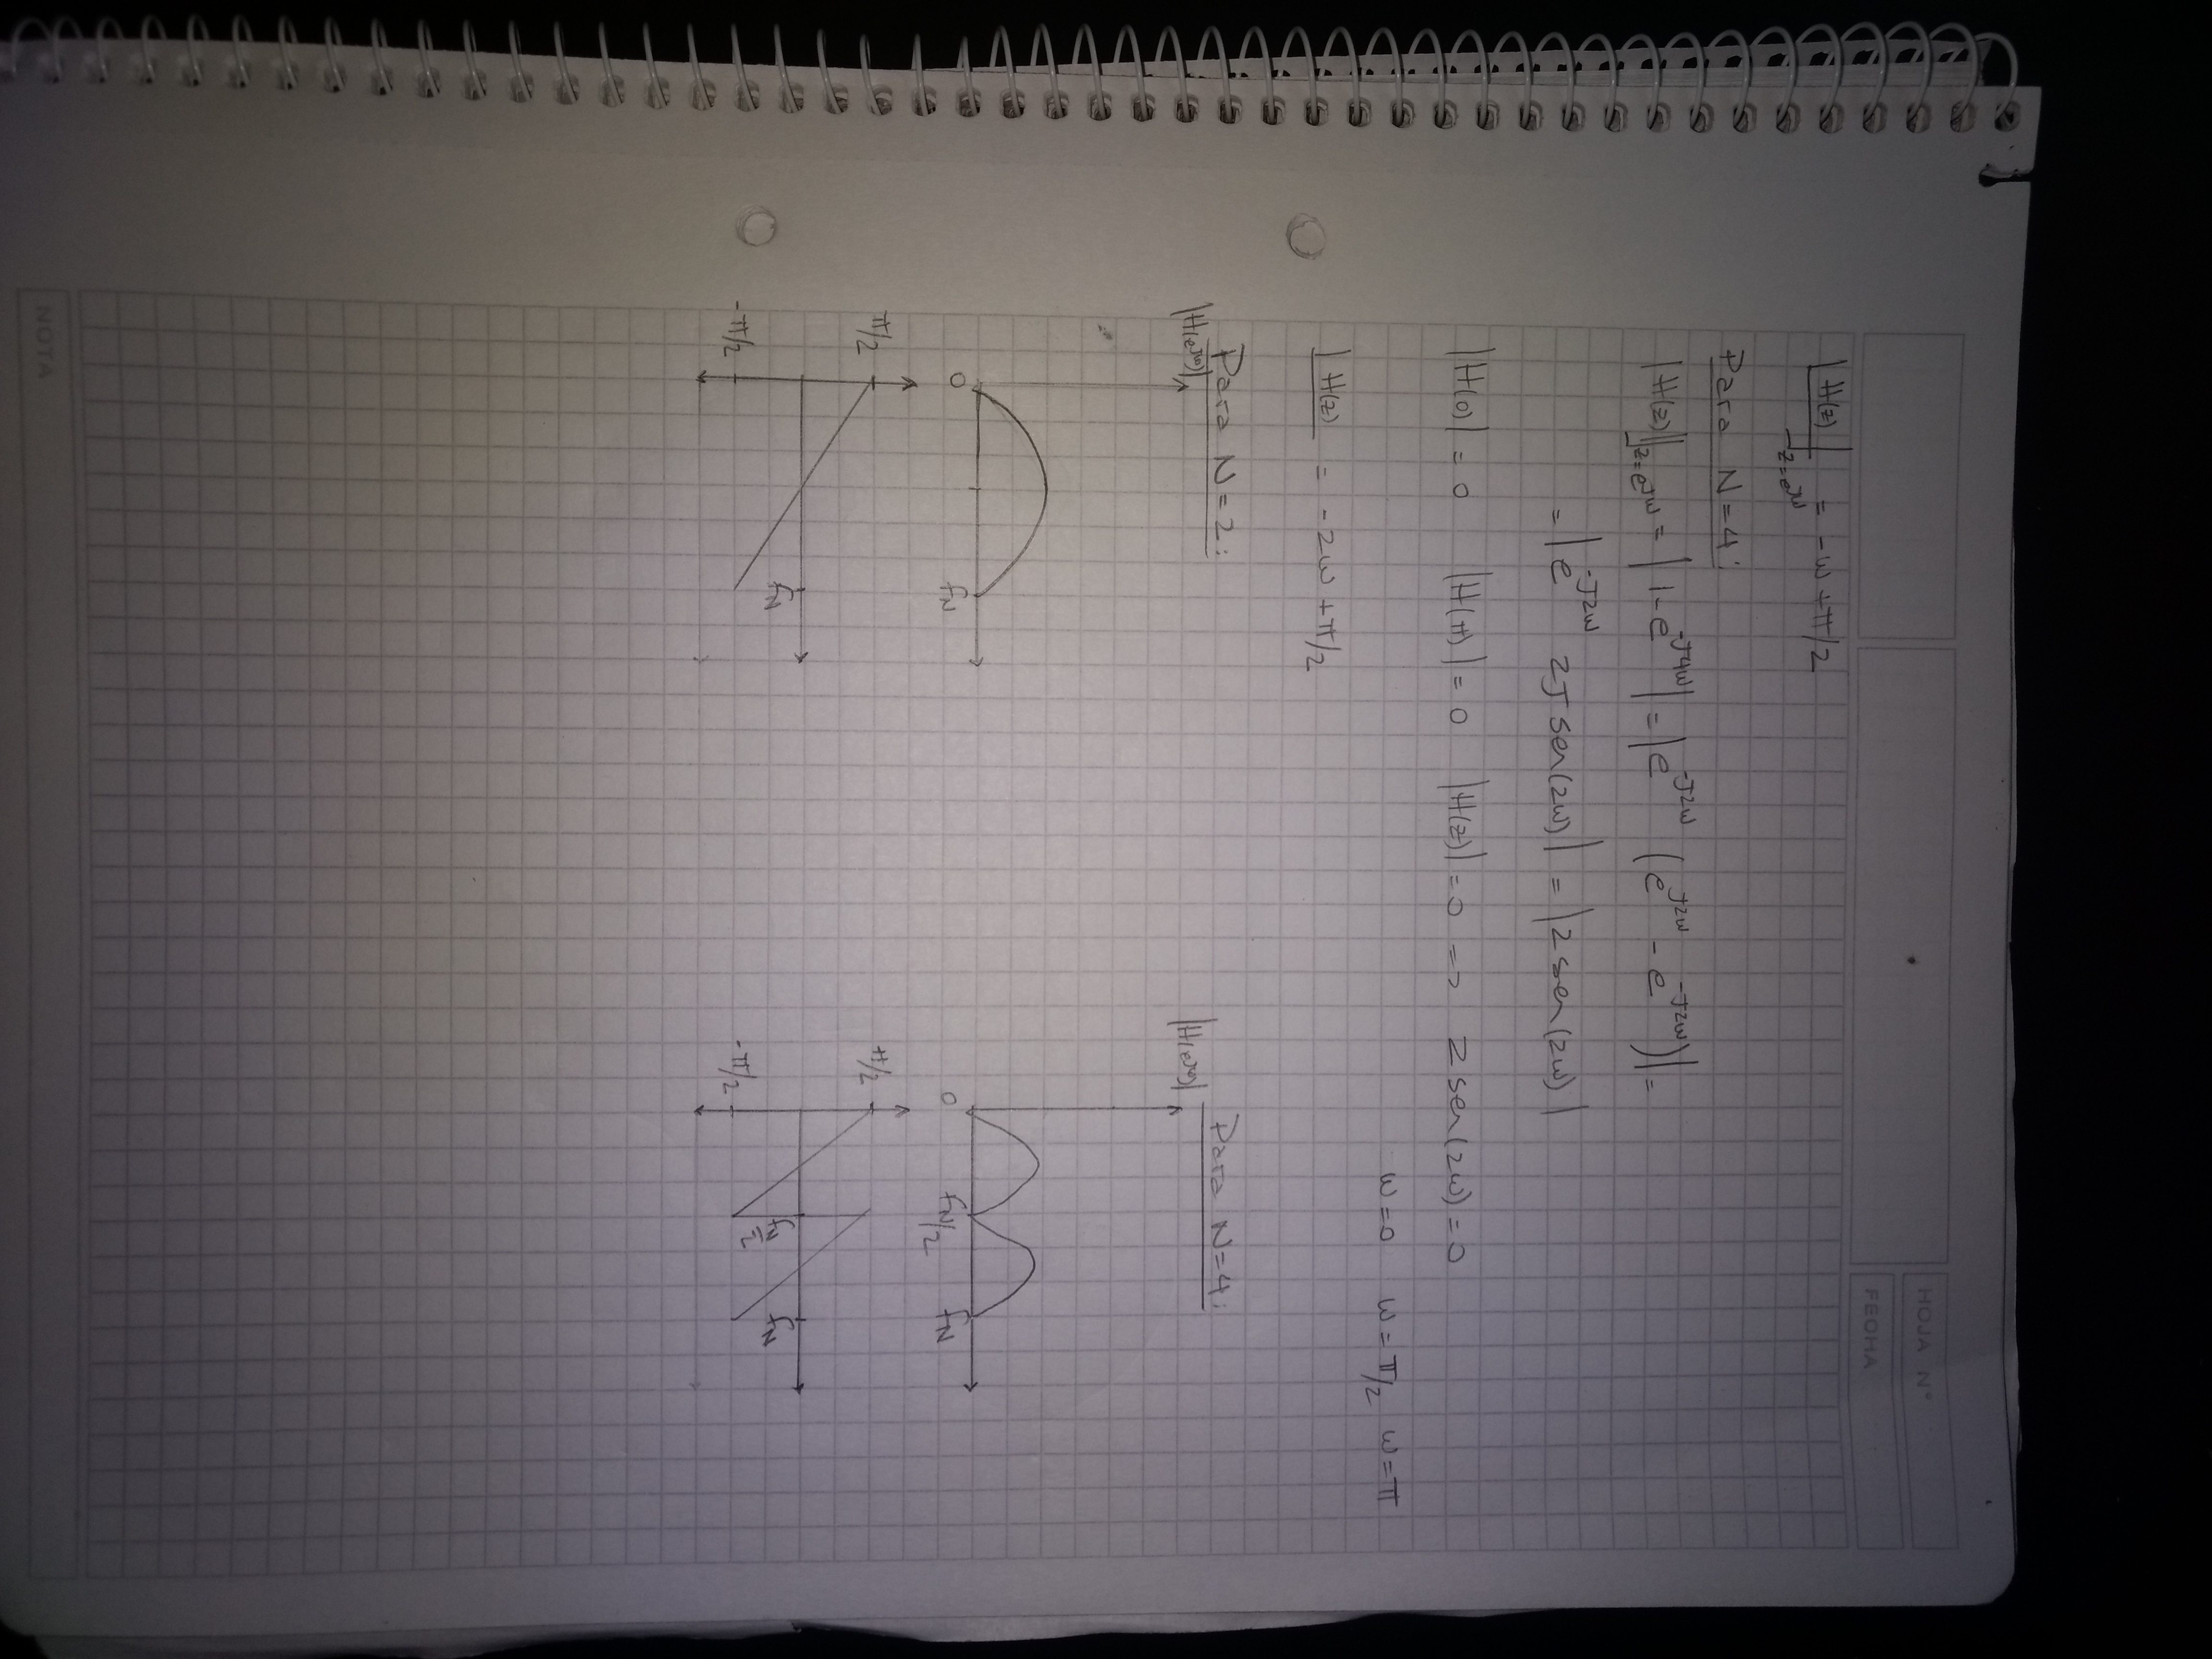 HOJA N°
FECHA
|H(z)|z=e^jω = -ω + π/2
Para N=4:
|H(z)||z=e^jω = |1-e^-j4ω| = |e^-j2ω (e^j2ω - e^-j2ω)| =
= |e^-j2ω 2j sen(2ω)| = |2 sen(2ω)|
|H(0)| = 0 |H(π)| = 0 |H(z)| = 0 => 2 sen(2ω) = 0
ω=0 ω=π/2 ω=π
|H(z) = -2ω + π/2
Para N=2:
|H(e^jω)|
0 fN
π/2
fN
-π/2
Para N=4:
|H(e^jω)|
0 fN/2 fN
π/2
fN/2 fN
-π/2
NOTA